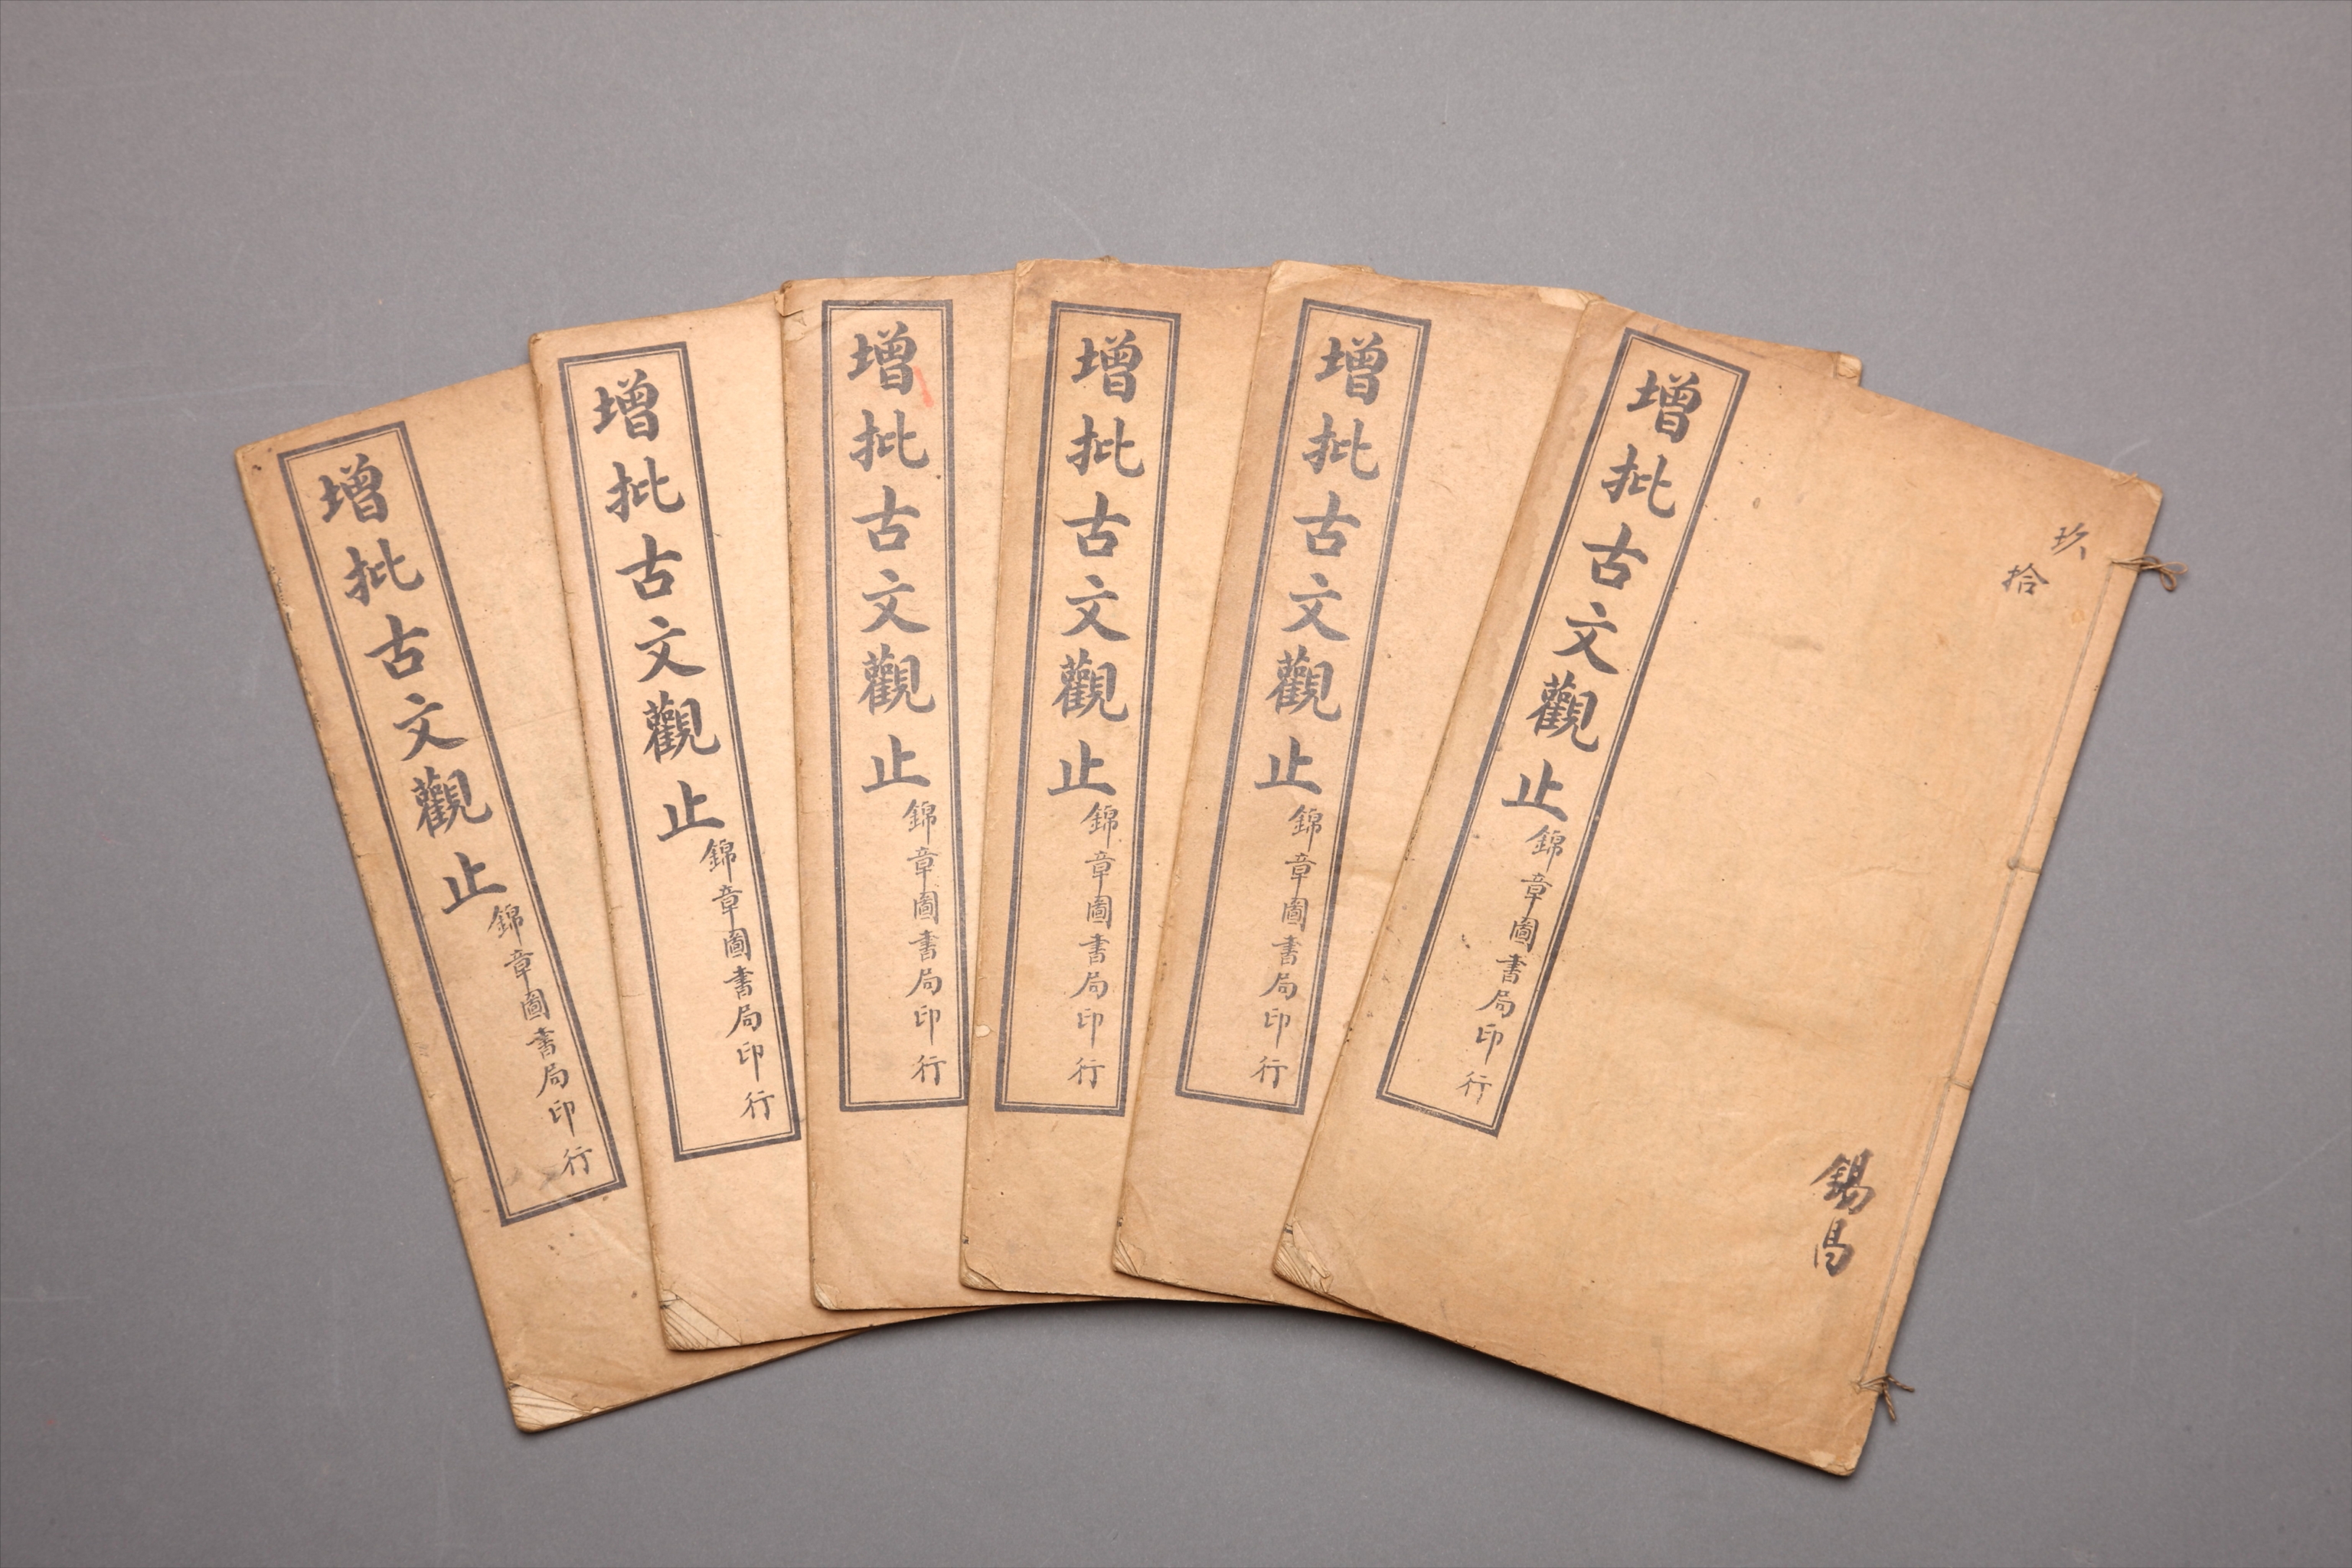 增批古文觀止
錦章圖書局印行
增批古文觀止
錦章圖書局印行
增批古文觀止
錦章圖書局印行
增批古文觀止
錦章圖書局印行
增批古文觀止
錦章圖書局印行
增批古文觀止
錦章圖書局印行
玖
拾
錫昌